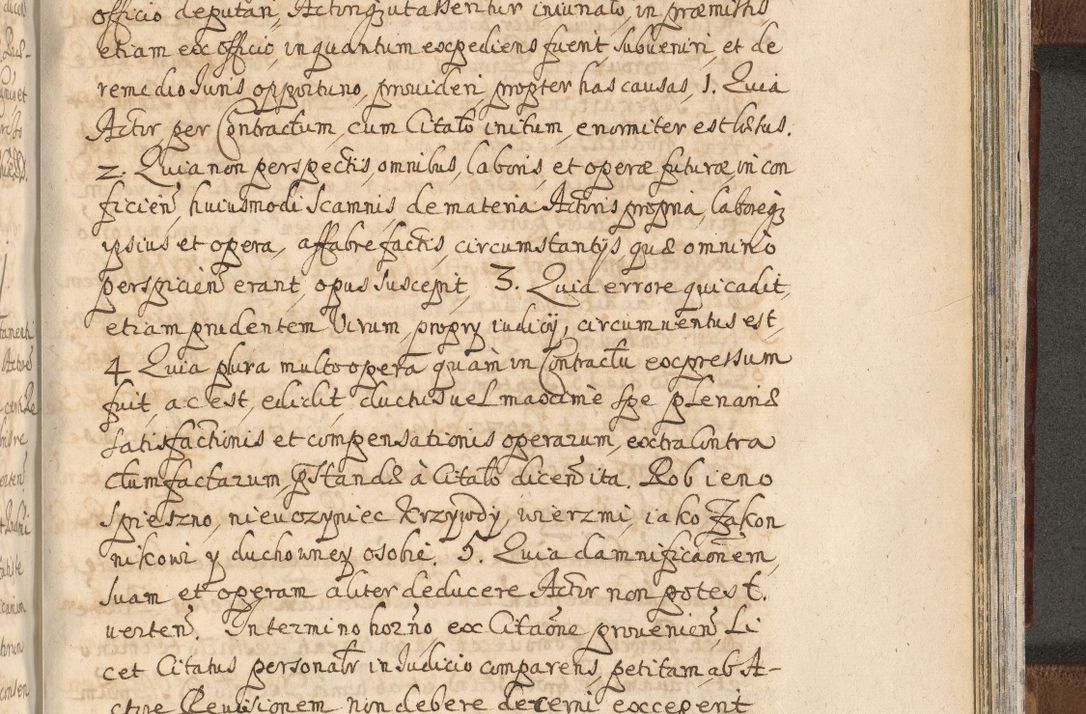 officio deputari, Actoriq utablentur iniunato, in præmissis
etiam ex officio, in quantum expediens fuerit subueniri, et de
remedio Iuris opportuno, prouideri, propter has causas, 1. Quia
Actor, per Contractum, cum Citato initum, enormiter est læsus.
2. Quia non perspectis, omnibus, laboris, et operæ futuræ, in con
ficien huiusmodi Scamnis de materia Actoris propria, laboreq
ipsius et opera, affabre factis, circumstantijs, quæ omnino
perspicien erant, opus suscepit, 3. Quia errore qui cadit,
etiam prudentem Virum, proprij iudicij, circumuentus est,
4 Quia plura multo opera quàm in Contractu expressum
fuit, ac est, edidit, ductus vel maximè spe plenariæ
satisfactionis et compensationis operarum, extra Contra
ctum factarum, pstandæ à Citato dicen ita. Rob ieno
spieszno, nieuczyniec Krzywdy, wierzmi, iako Zakon
nikowi y duchowney osobie. 5. Quia damnificaonem,
suam et operam aliter deducere Actor non potest.
verten. In termino horno, ex Citaone prouenien Li
cet Citatus personalr in Iudicio comparens, petitam ab A-
ctore Reuisionem non debere decerni exceperit